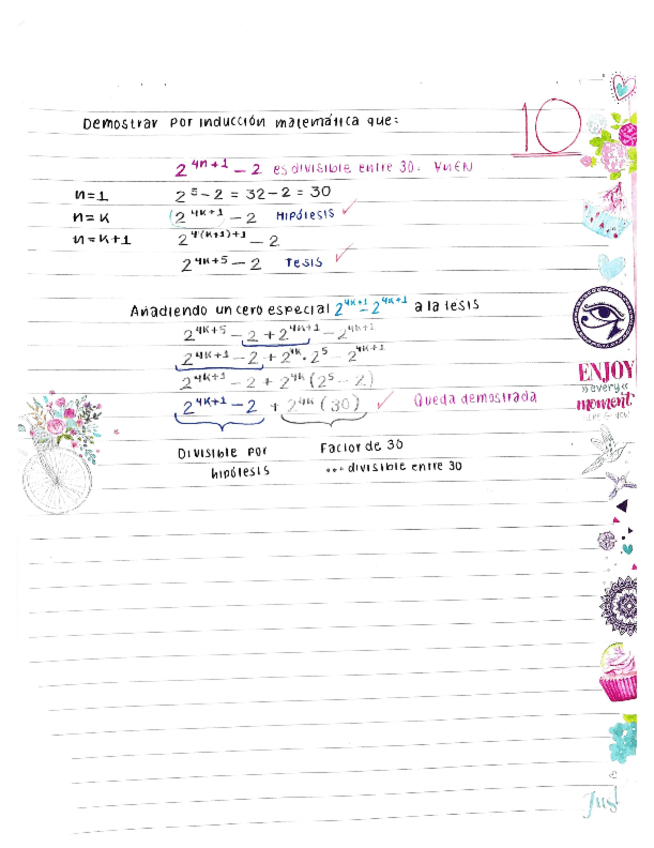 10
Demostrar por inducción matemática que:
2^{4n+1} - 2 es divisible entre 30. ∀n∈N
n=1 2^5 - 2 = 32 - 2 = 30
n=k (2^{4k+1} - 2 Hipótesis ✓
n=k+1 2^{4(k+1)+1} - 2
2^{4k+5} - 2 Tesis ✓
Añadiendo un cero especial 2^{4k+1} - 2^{4k+1} a la tesis
2^{4k+5} - 2 + 2^{4k+1} - 2^{4k+1}
2^{4k+1} - 2 + 2^{4k} · 2^5 - 2^{4k+1}
2^{4k+1} - 2 + 2^{4k} (2^5 - 2)
2^{4k+1} - 2 + 2^{4k} (30) ✓ Queda demostrada
Divisible por Factor de 30
hipótesis ∴ divisible entre 30
ENJOY
every
moment
Just